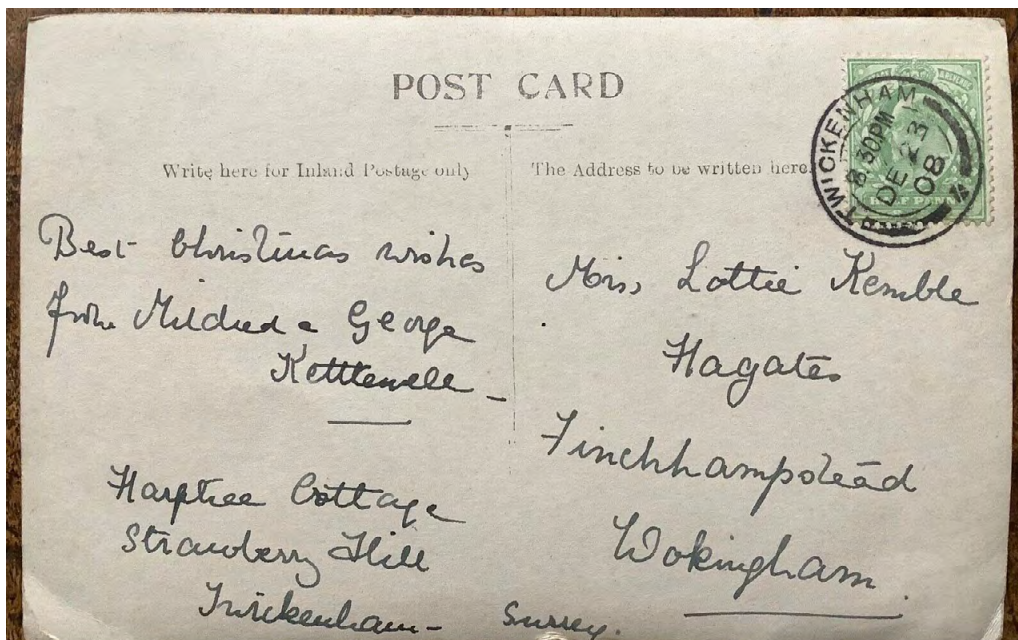 POST CARD
Write here for Inland Postage only.
The Address to be written here.
TWICKENHAM
8.30PM
DE 23
08
HALF PENNY
Best Christmas wishes
from Mildred & George
Kettlewell -
Harptree Cottage
Strawberry Hill
Twickenham - Surrey.
Miss Lottie Kemble
Hagates
Finchhampstead
Wokingham